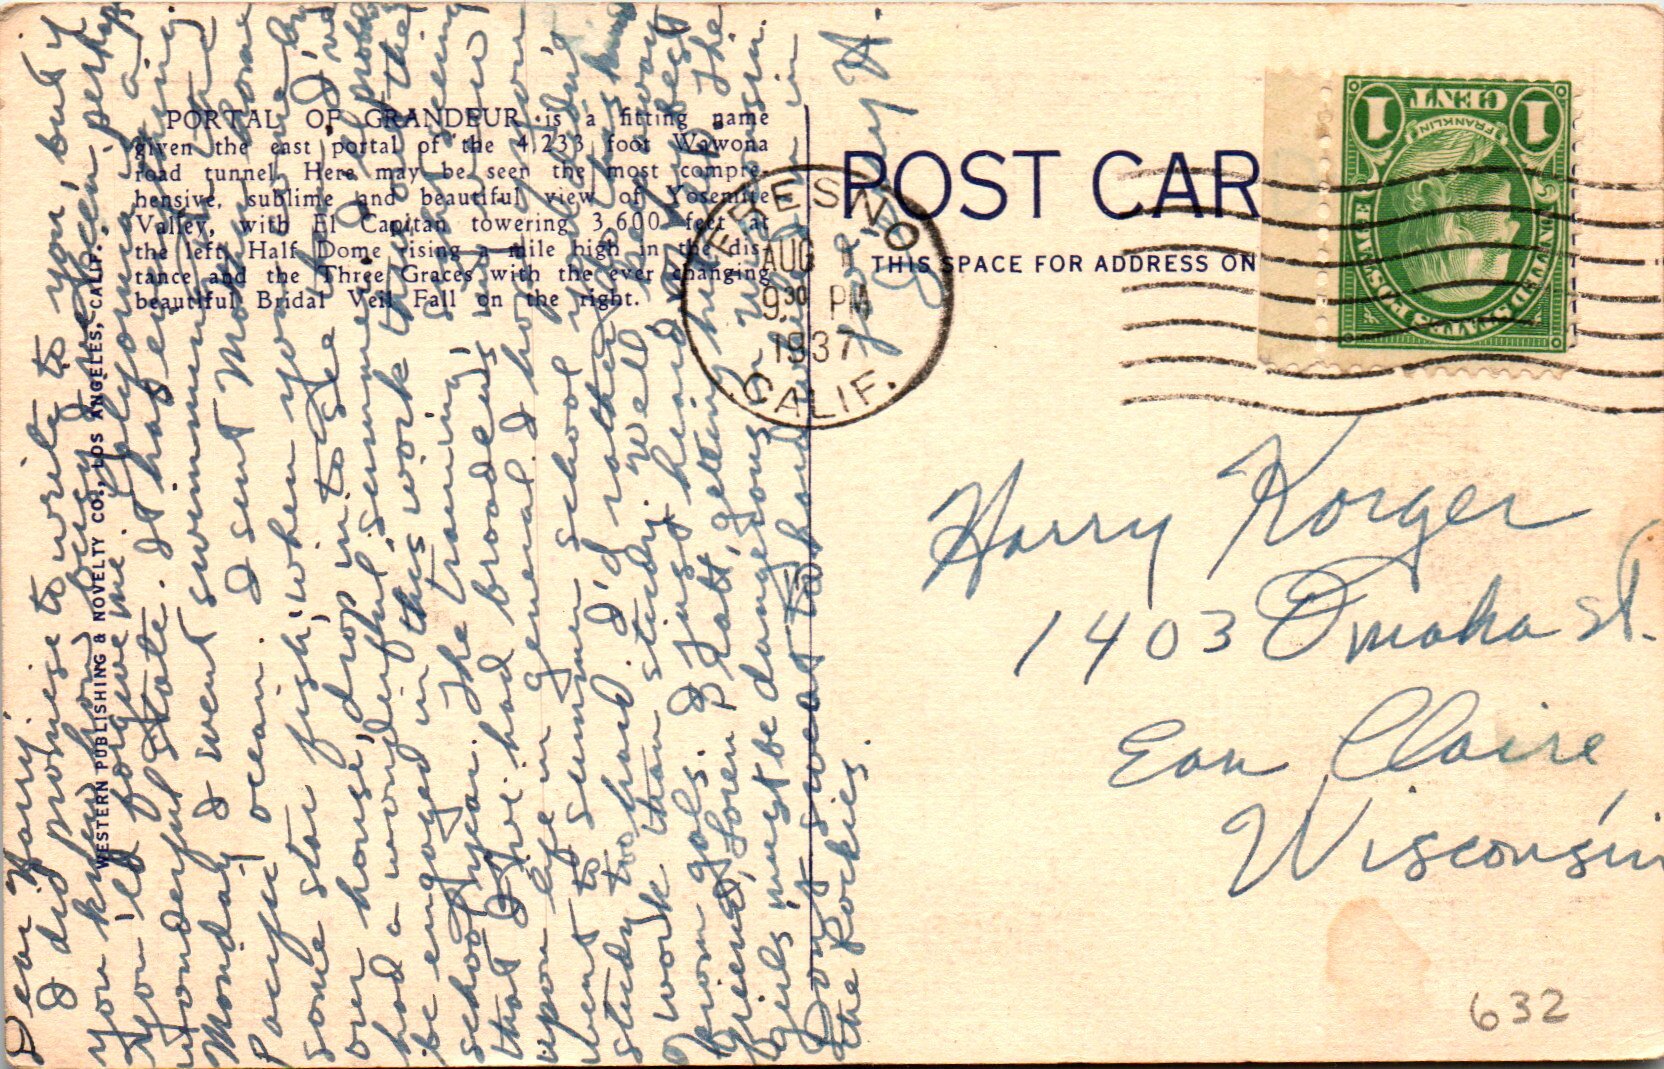 PORTAL OF GRANDEUR is a fitting name
given the east portal of the 4,233 foot Wawona
road tunnel. Here may be seen the most compre-
hensive, sublime and beautiful view of Yosemite
Valley, with El Capitan towering 3,600 feet at
the left, Half Dome rising a mile high in the dis-
tance and the Three Graces with the ever changing
beautiful Bridal Veil Fall on the right.
WESTERN PUBLISHING & NOVELTY CO., LOS ANGELES, CALIF.
POST CAR
THIS SPACE FOR ADDRESS ON
FRESNO
AUG
9 30 PM
1937
CALIF.
UNITED STATES POSTAGE
FRANKLIN
1 CENT 1
Harry Korger
1403 Omaha St.
Eau Claire
Wisconsin
632
Dear Harry:
I did promise to write to you, but if
you knew how busy I've been perhaps
you'll forgive me. California is a
wonderful state. It has everything.
Monday I went swimming in the
Pacific ocean. I sent Moy home
some star fish, when you're by
our house, drop in to see I've
had a wonderful summer. I'll
be engaged in this work
school year. The training,
that I've had broadens
upon life in general. I hope you
went to summer school and didn't
study too hard. I'd rather
work than study. Well
from gals. I just heard
friend, Loren Pratt, getting
girls must be dangerous in Wisconsin.
Don't sweat too hard
the Rockies.